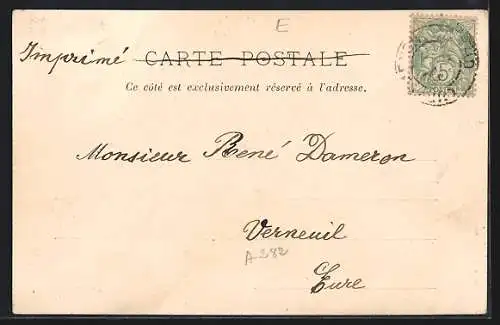 E
Imprimé CARTE POSTALE
Ce côté est exclusivement réservé à l'adresse.
5
Monsieur René Dameron
Verneuil
A 282
Eure